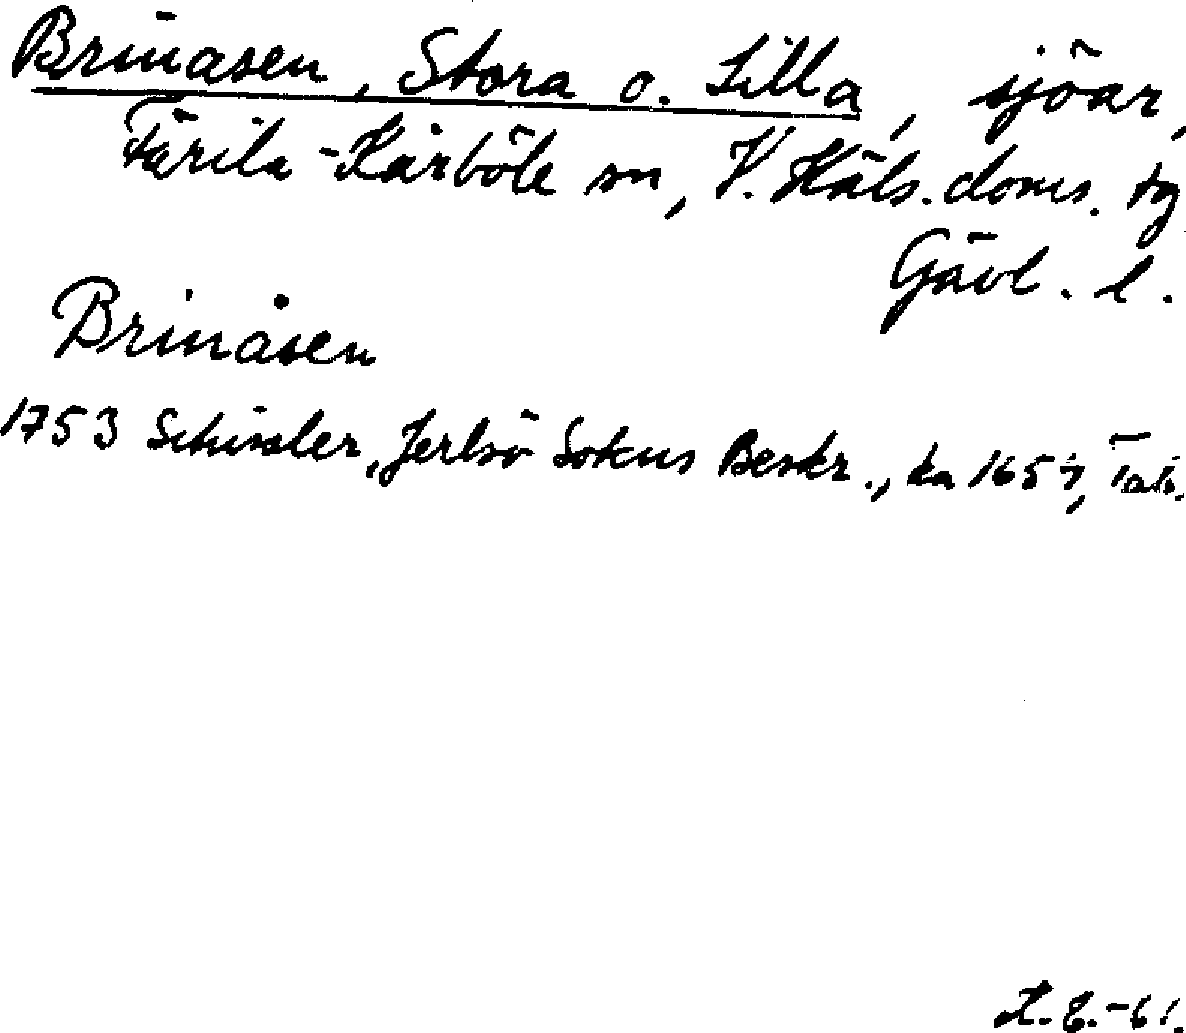 Brinåsen, Stora o. Lilla, sjöar,
Färila-Kårböle sn, V. Häls. doms. tg
Gävl. l.
Brinåsen
1753 Schissler, Jerlsö Sokns Beskr., ka 1654, Tab.
-61.